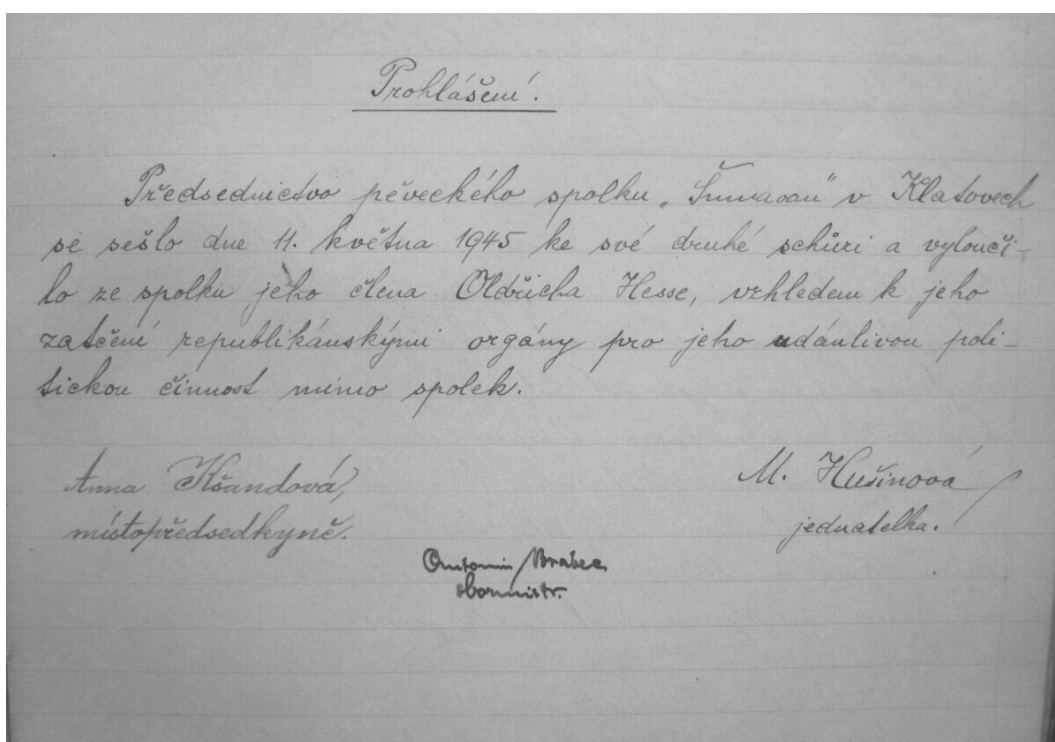 Prohlášení.
Předsednictvo pěveckého spolku „Šumavan" v Klatovech
se sešlo dne 11. května 1945 ke své druhé schůzi a vylouči-
lo ze spolku jeho člena Oldřicha Hesse, vzhledem k jeho
zatčení republikánskými orgány pro jeho udánlivou poli-
tickou činnost mimo spolek.
Anna Kšandová,
místopředsedkyně.
M. Hušinová
jednatelka.
Antonín Brabec
sbormistr.